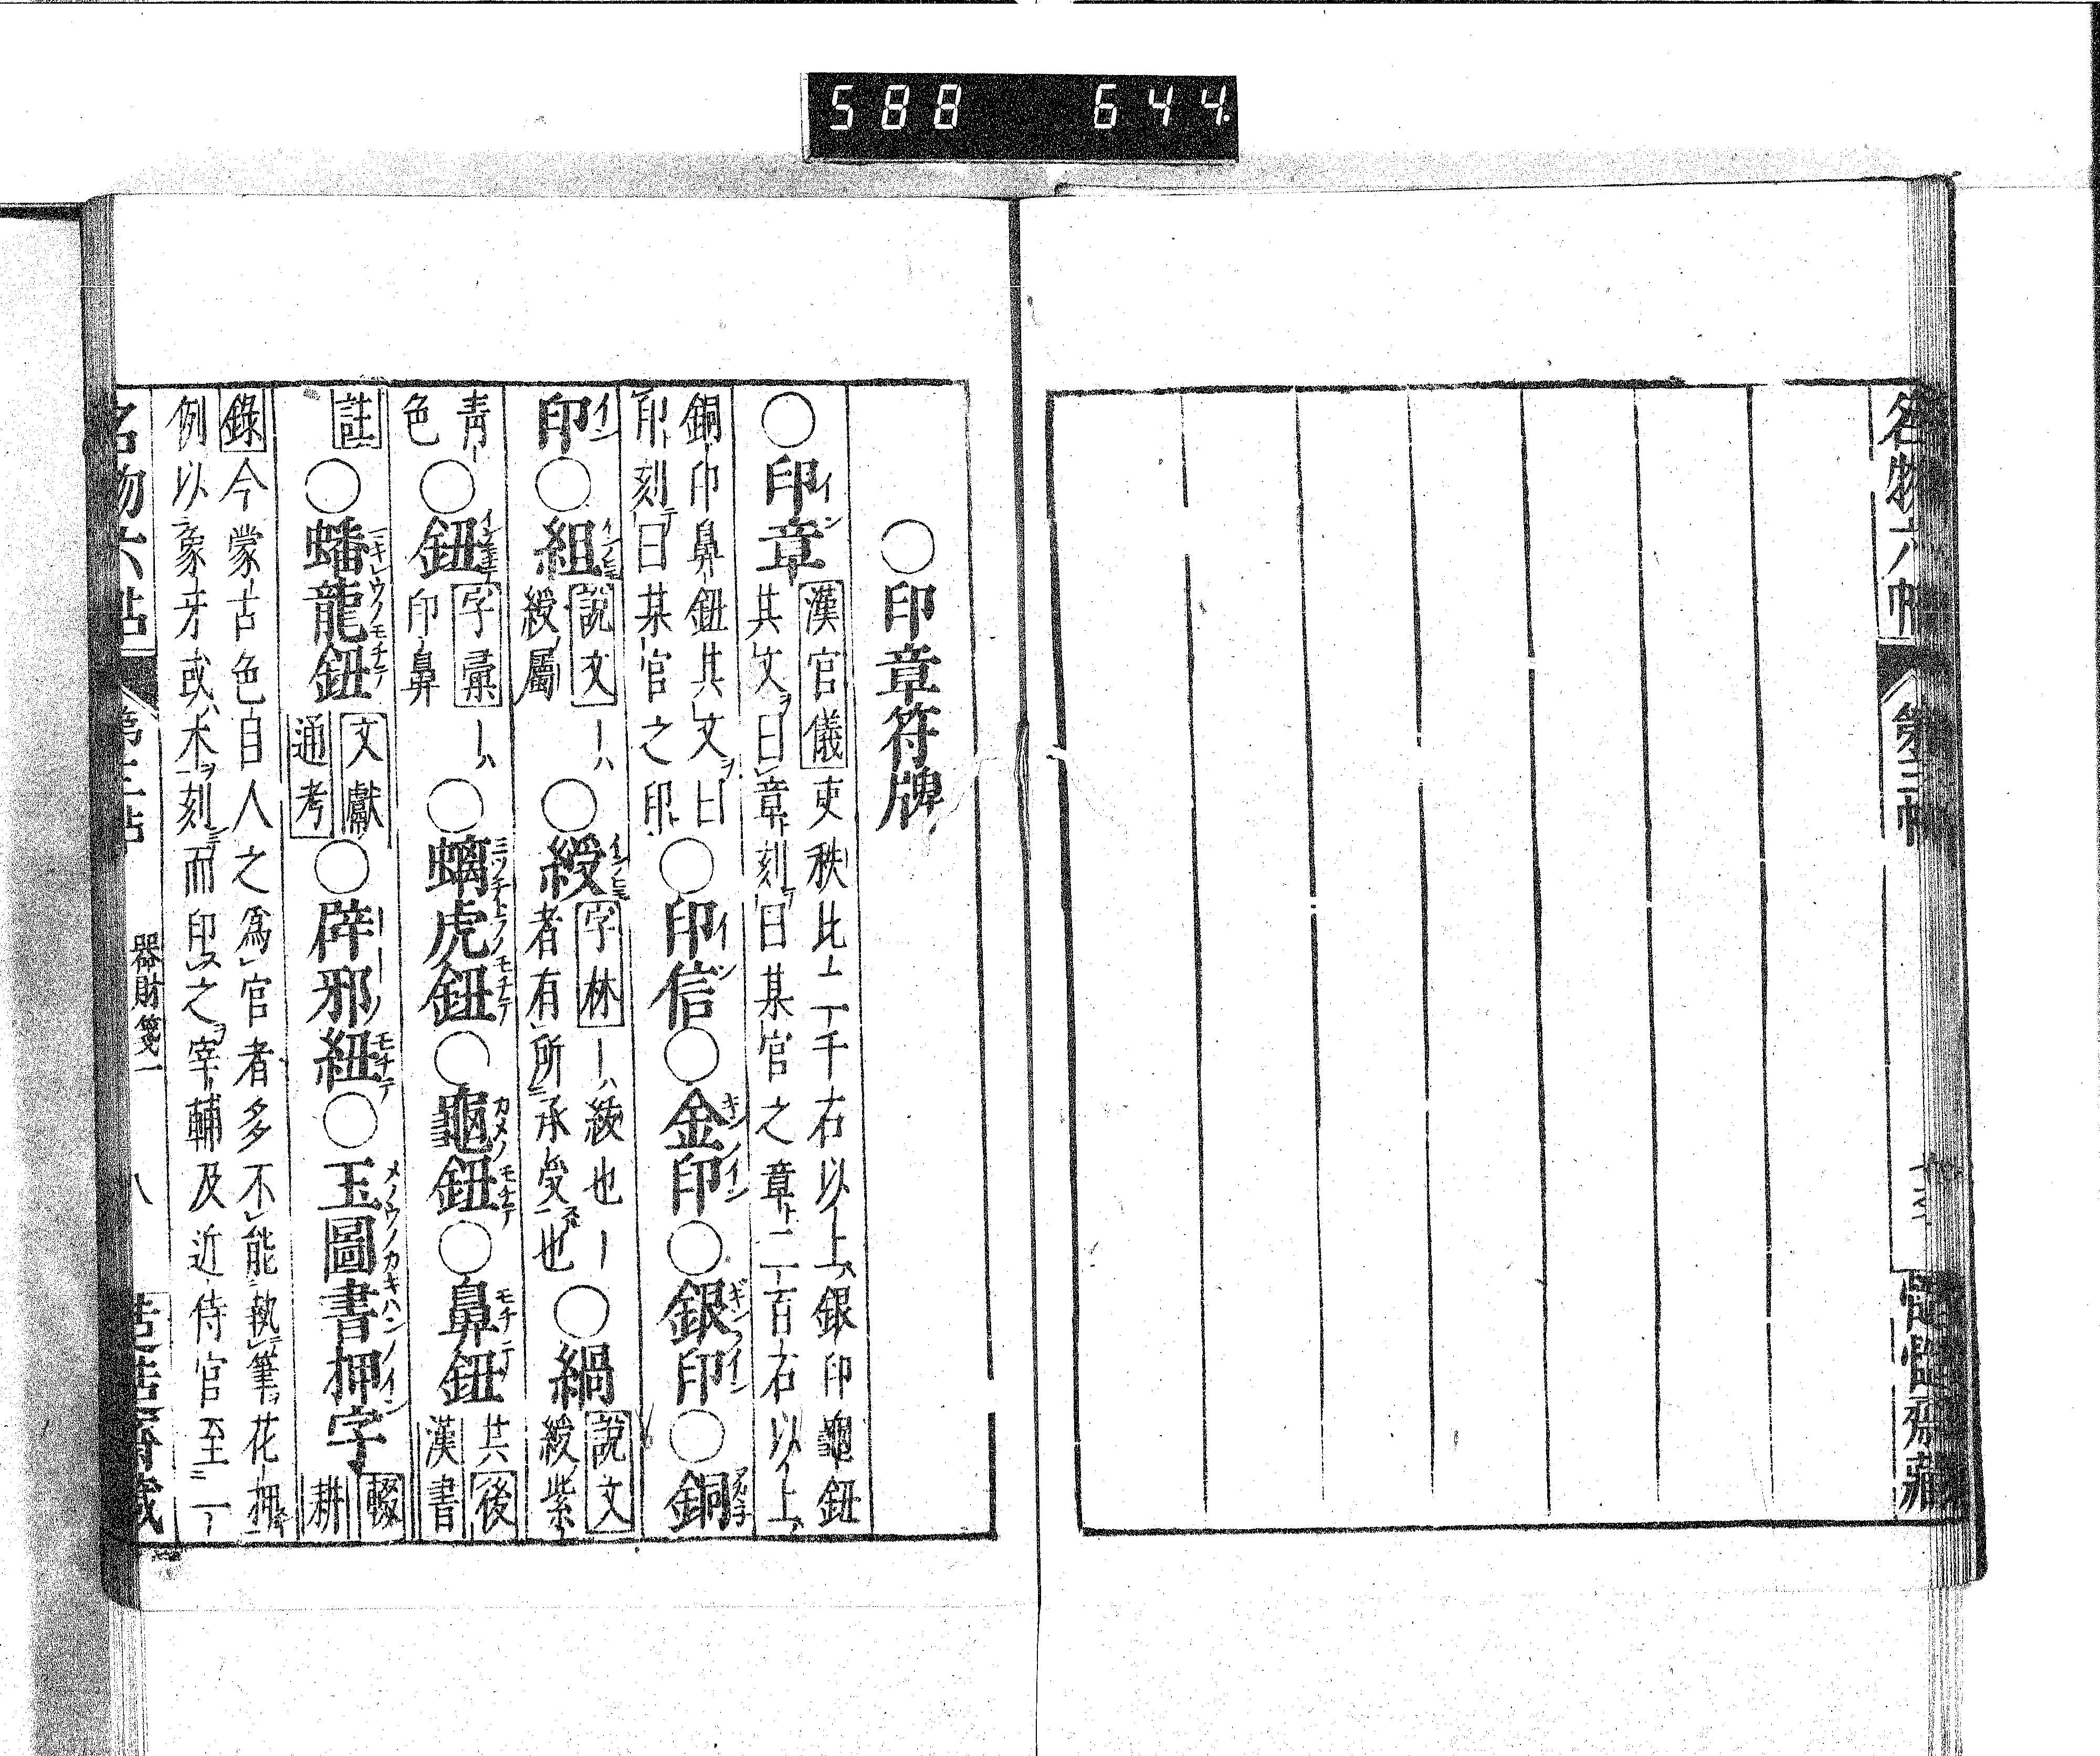 588 644
名物六帖 第三帖
○印章符牌
○印章 漢官儀 吏秩比二千石以上銀印龜鈕
其文曰章刻曰某官之章二百石以上
銅印鼻鈕其文曰
印刻曰某官之印 ○印信○金印○銀印○銅
印○組 說文 ーハ綬屬 ○綬 字林 ーハ紱也ー者有所承受也 ○緺 說文 綬紫
青色 ○鈕 字彙 ーハ印鼻 ○螭虎鈕○龜鈕○鼻鈕 共後漢書
註 ○蟠龍鈕 文獻通考 ○辟邪紐○玉圖書押字 輟耕
錄 今蒙古色目人之爲官者多不能執筆花押
例以象牙或木刻而印之宰輔及近侍官至一
器財箋一 八